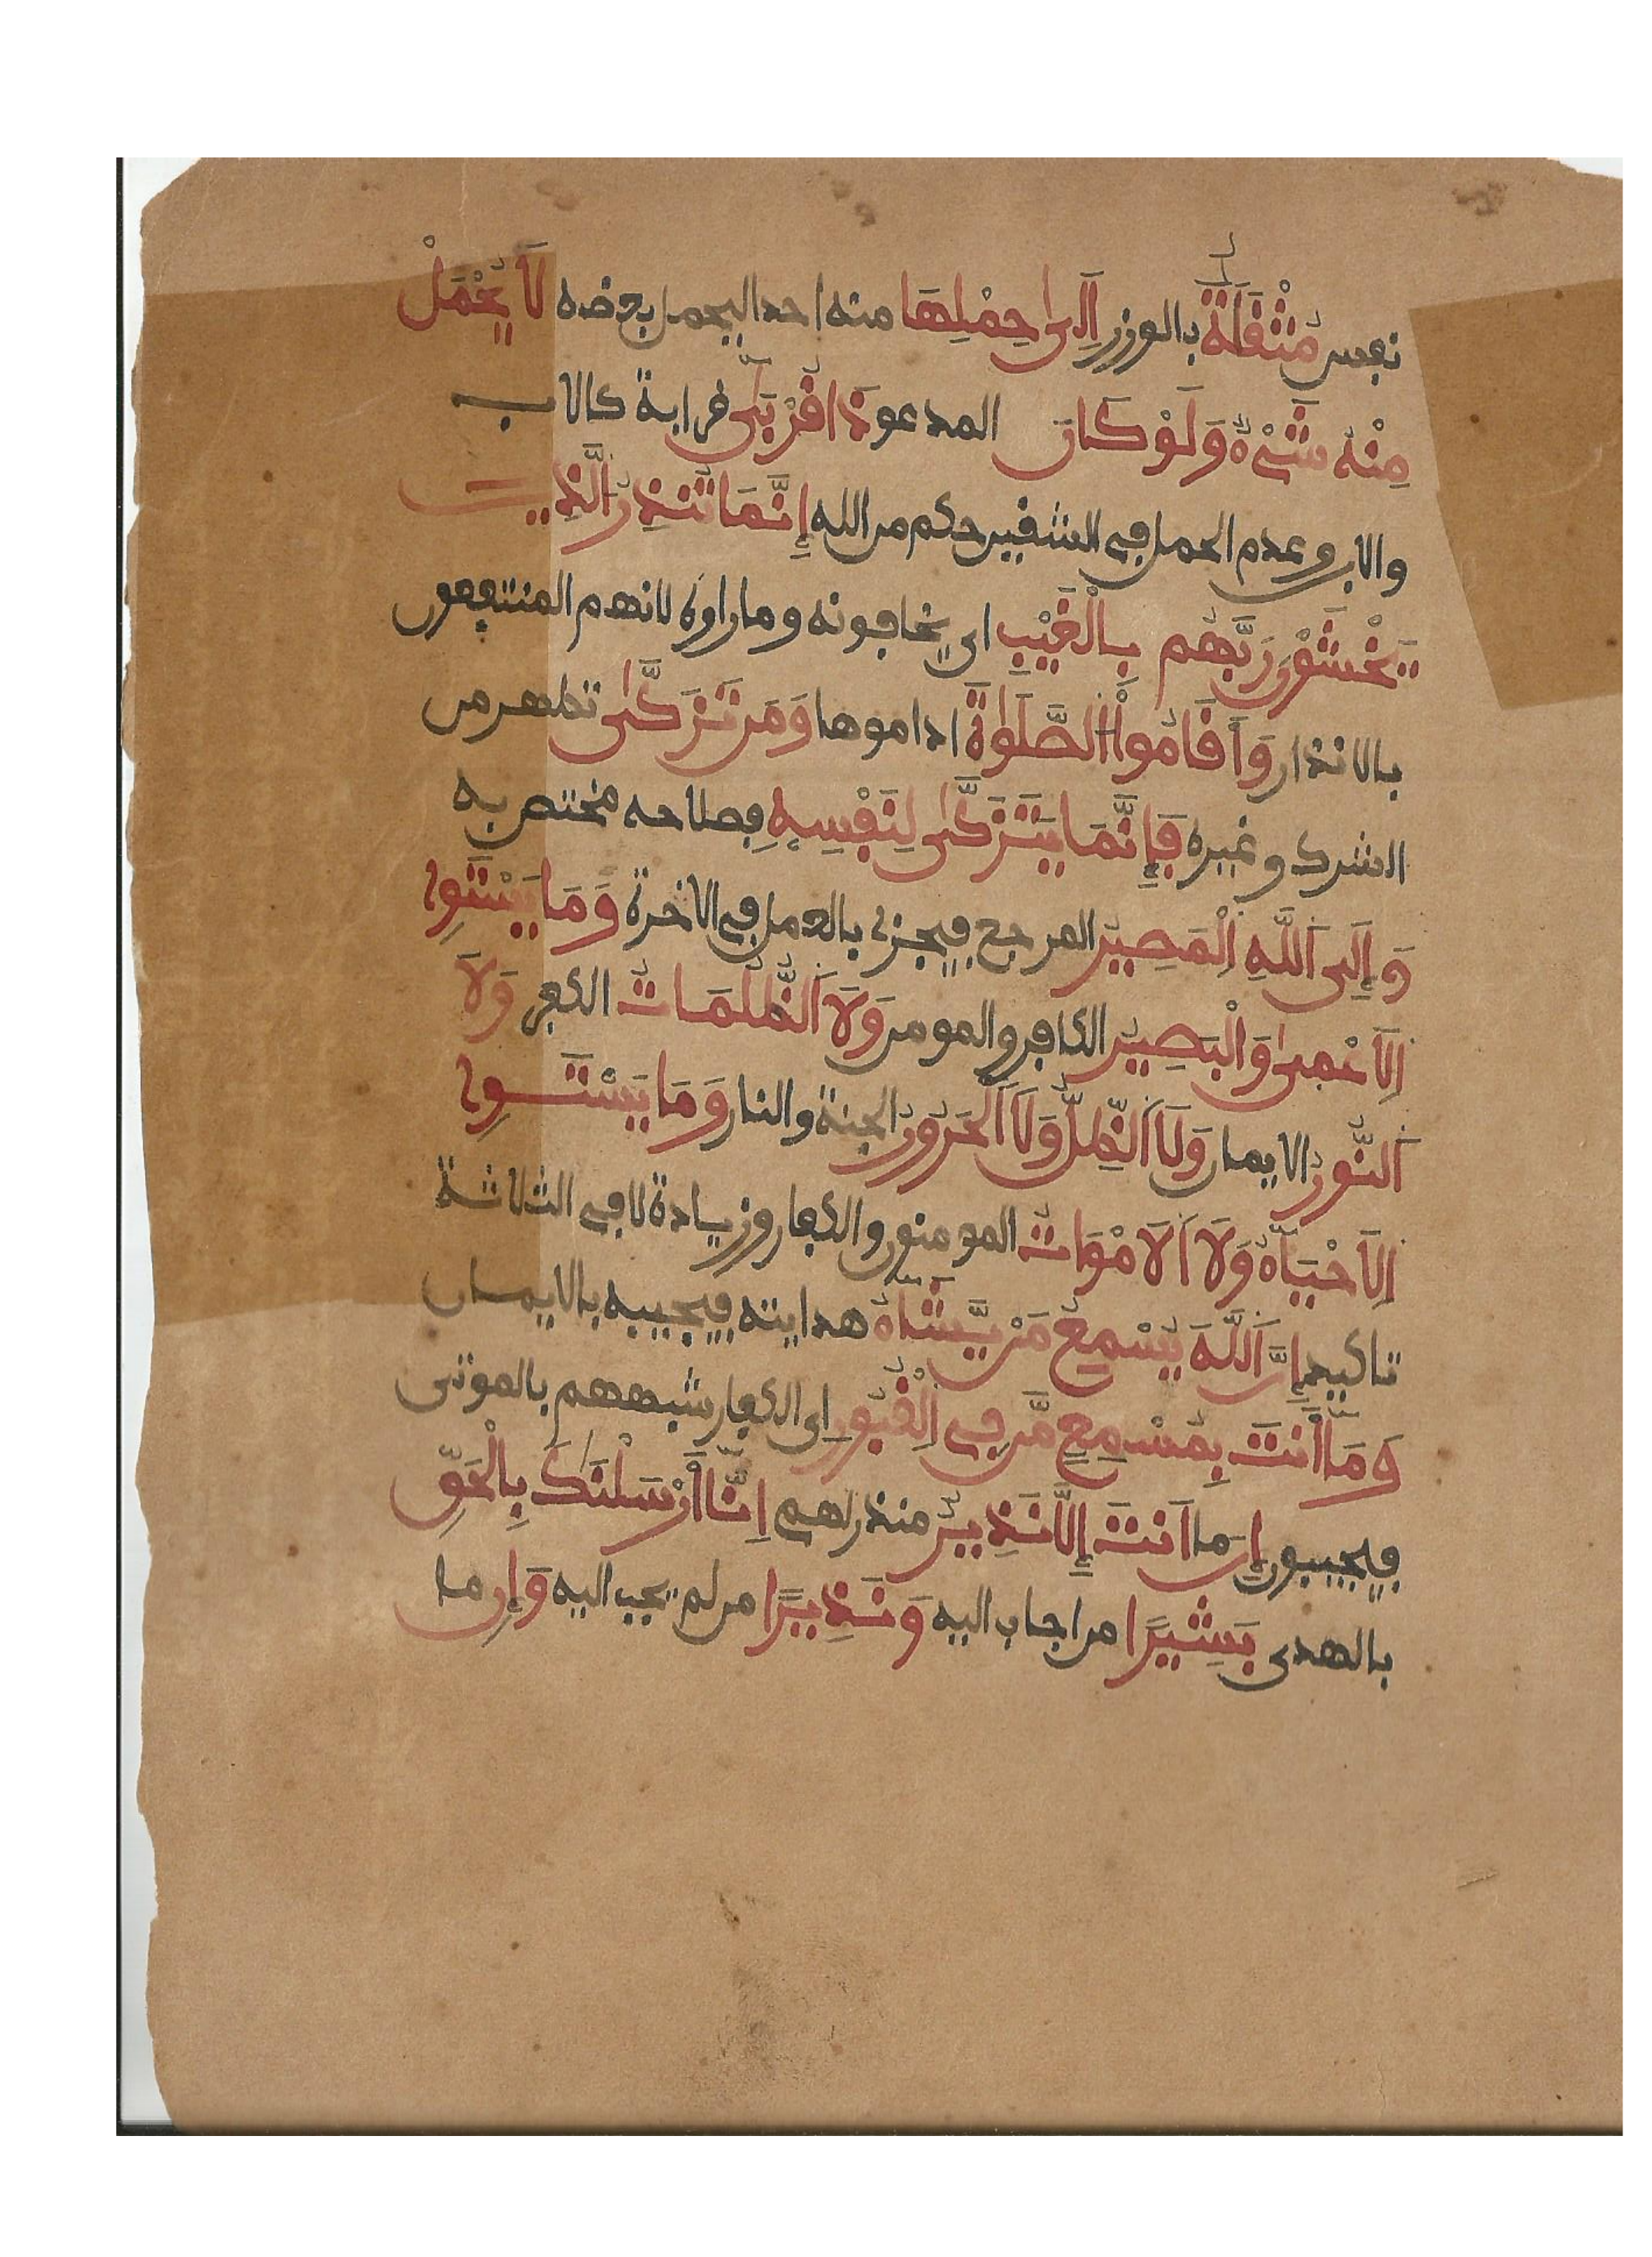 نفس مُثْقَلَةٌ بالوزر اِلَىٰ حِمْلِهَا منه احدا ليحمل بعضه لَا يُحْمَلْ
مِنْهُ شَيْءٌ وَلَوْ كَانَ المدعو ذَا قُرْبَىٰ قرابة كالاب
والابن وعدم الحمل في الشقين حكم من الله إِنَّمَا تُنذِرُ الَّذِينَ
يَخْشَوْنَ رَبَّهُم بِالْغَيْبِ اي يخافونه وما راوه لانهم المنتفعون
بالانذار وَأَقَامُواْ الصَّلَوٰةَ اداموها وَمَن تَزَكَّىٰ تطهر من
الشرك وغيره فَإِنَّمَا يَتَزَكَّىٰ لِنَفْسِهِ فصلاحه مختص به
وَإِلَى اَللَّهِ اِلْمَصِيرُ المرجع فيجزي بالعمل في الاخرة وَمَا يَسْتَوِي
اِلَاعْمَىٰ وَالْبَصِيرُ الكافر والمومن وَلَا اَلظُّلُمَاتُ الكفر وَلَا
اَلنُّورُ الايمان وَلَا اَلظِّلُّ وَلَا اَلْحَرُورُ الجنة والنار وَمَا يَسْتَوِي
اِلَاحْيَآءُ وَلَا اَلَامْوَاتُ المومنون والكفار وزيادة لا في الثلاثة
تاكيد إِنَّ اَللَّهَ يُسْمِعُ مَنْ يَّشَآءُ هدايته فيجيبه بالايمان
وَمَآ أَنتَ بِمُسْمِعٍ مَّن فِي اِلْقُبُورِ اي الكفار شبههم بالموتى
فيجيبون إِنَ اَنتَ إِلَّا نَذِيرٌ منذر لهم اِنَّآ أَرْسَلْنَٰكَ بِالْحَقِّ
بالهدى بَشِيرًا من اجاب اليه وَنَذِيرًا من لم يجب اليه وَإِن ما